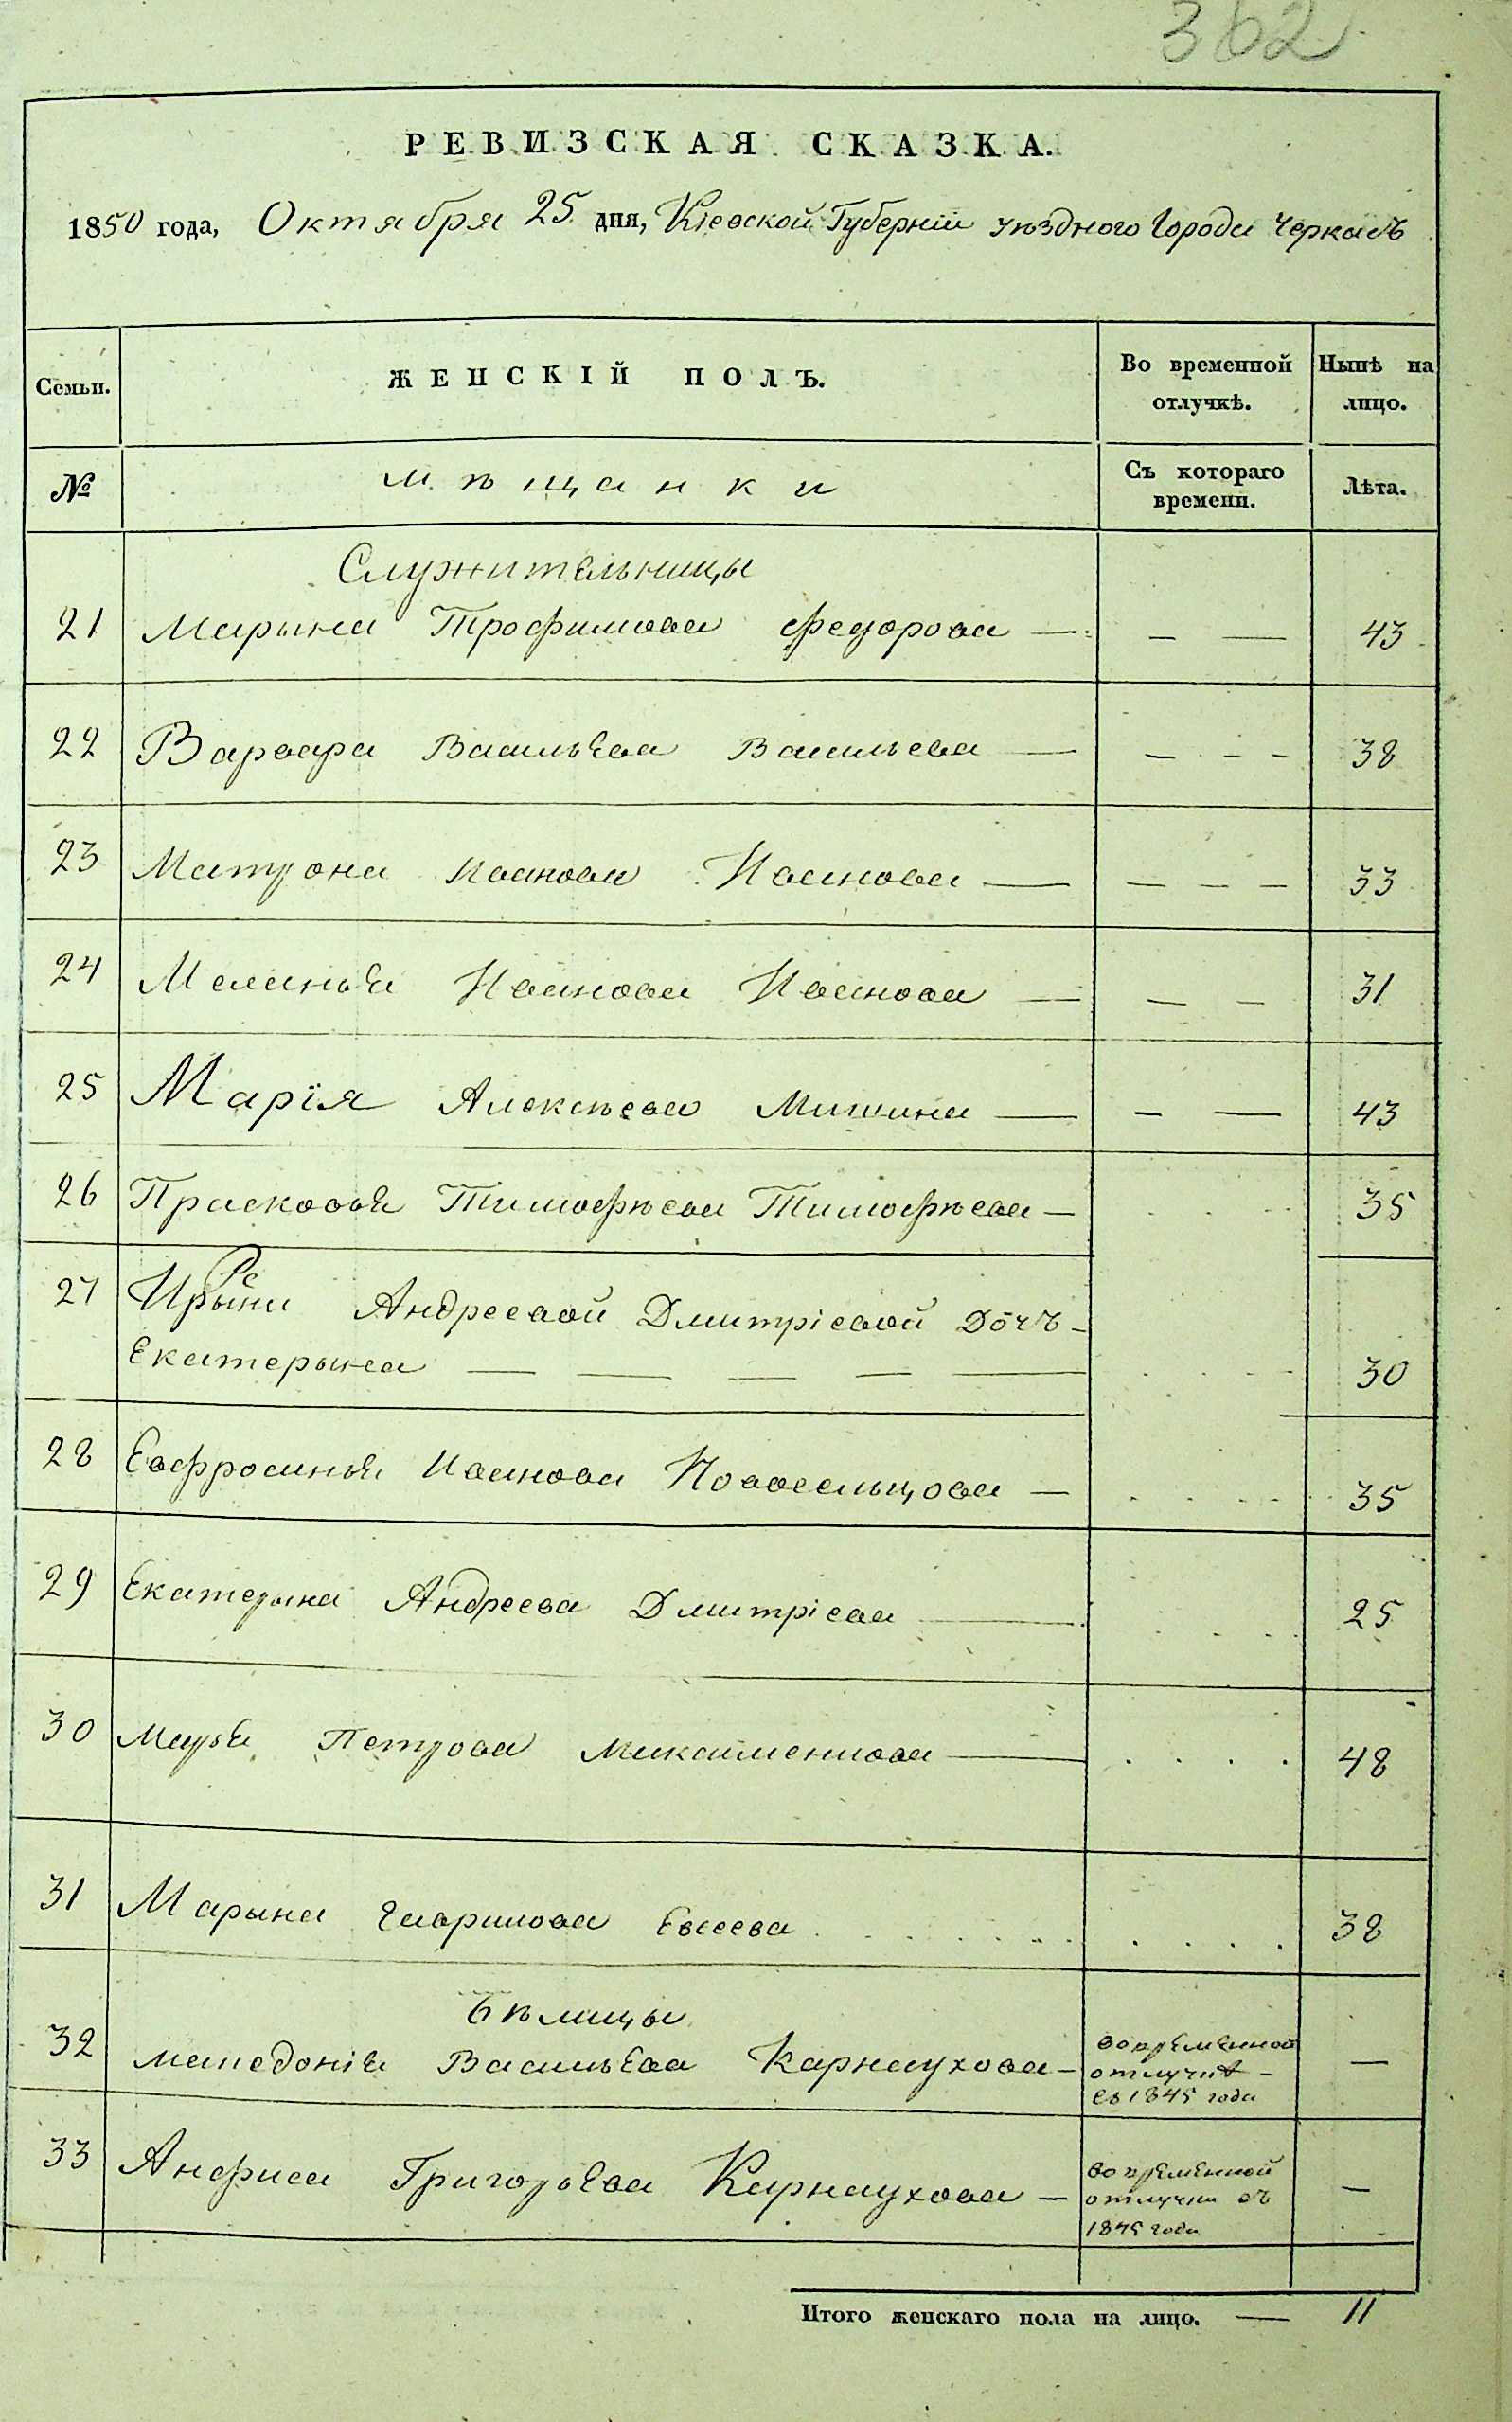 362
РЕВИЗСКАЯ СКАЗКА.
1850 года, Октября 25 дня, Кіевской Губерніи уѣзднаго Города Черкасъ
Семьи. ЖЕНСКІЙ ПОЛЪ. Во временной отлучкѣ. Нынѣ на лицо.
№ мѣщанки Съ котораго времени. Лѣта.
Служительницы
21 Марына Трофимова Федорова — — — 43
22 Варвара Васильева Васильева — — - - 38
23 Матрона Иванова Иванова — — — — 33
24 Меланья Иванова Иванова — — — 31
25 Марія Алексѣева Мишина — — — 43
26 Прасковья Тимофѣева Тимофѣева — 35
27 Ирыны Андреевой Дмитріевой Дочь
Екатерына — — — — — 30
28 Евфросинья Иванова Новосельцова — 35
29 Екатерына Андреева Дмитріева — 25
30 Марья Петрова Максименкова — 48
31 Марына Гаврилова Евсеева 38
Бѣлицы
32 Македонія Васильева Карнаухова — во временной отлучкѣ — съ 1845 года —
33 Анфиса Григорьева Карнаухова — во временной отлучки съ 1845 года —
Итого женскаго пола на лицо. — 11